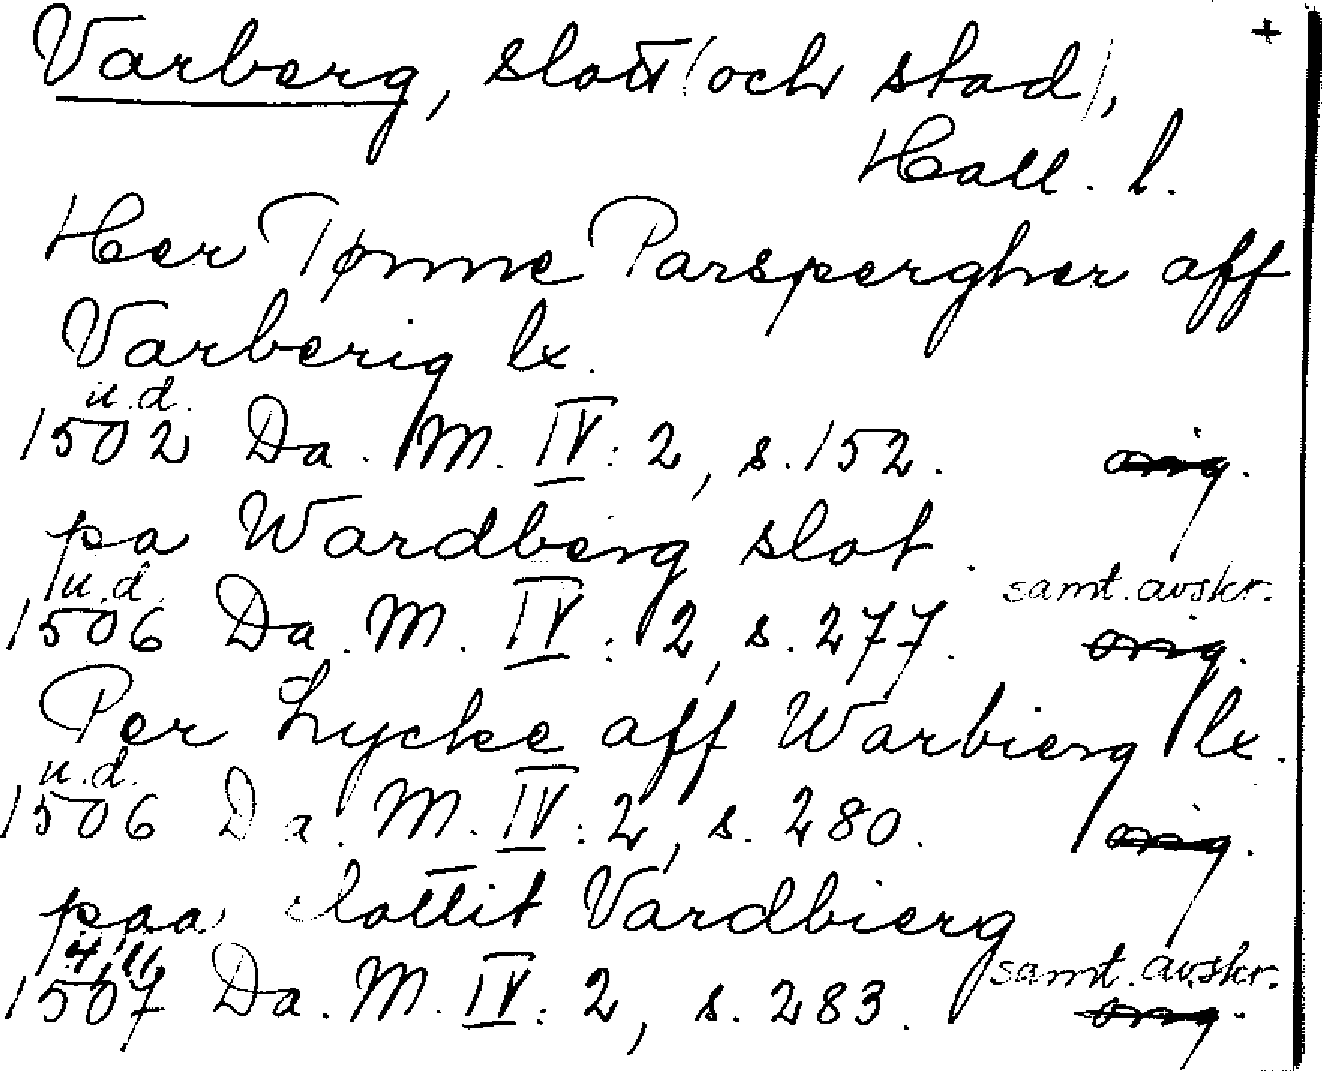 Varberg, slott (och stad), +
Hall. l.
Her Tønne Parspergher aff
Varberig lx.
u.d.
1502 Da. M. IV: 2, s. 152. orig.
pa Wardberg slot.
u.d. samt. avskr.
1506 Da. M. IV: 2, s. 277. orig.
Per Lycke aff Warbierg lx.
u.d.
1506 Da. M. IV: 2, s. 280. orig.
paa slottit Vardbierg
4/11 samt. avskr.
1507 Da. M. IV: 2, s. 283. orig.